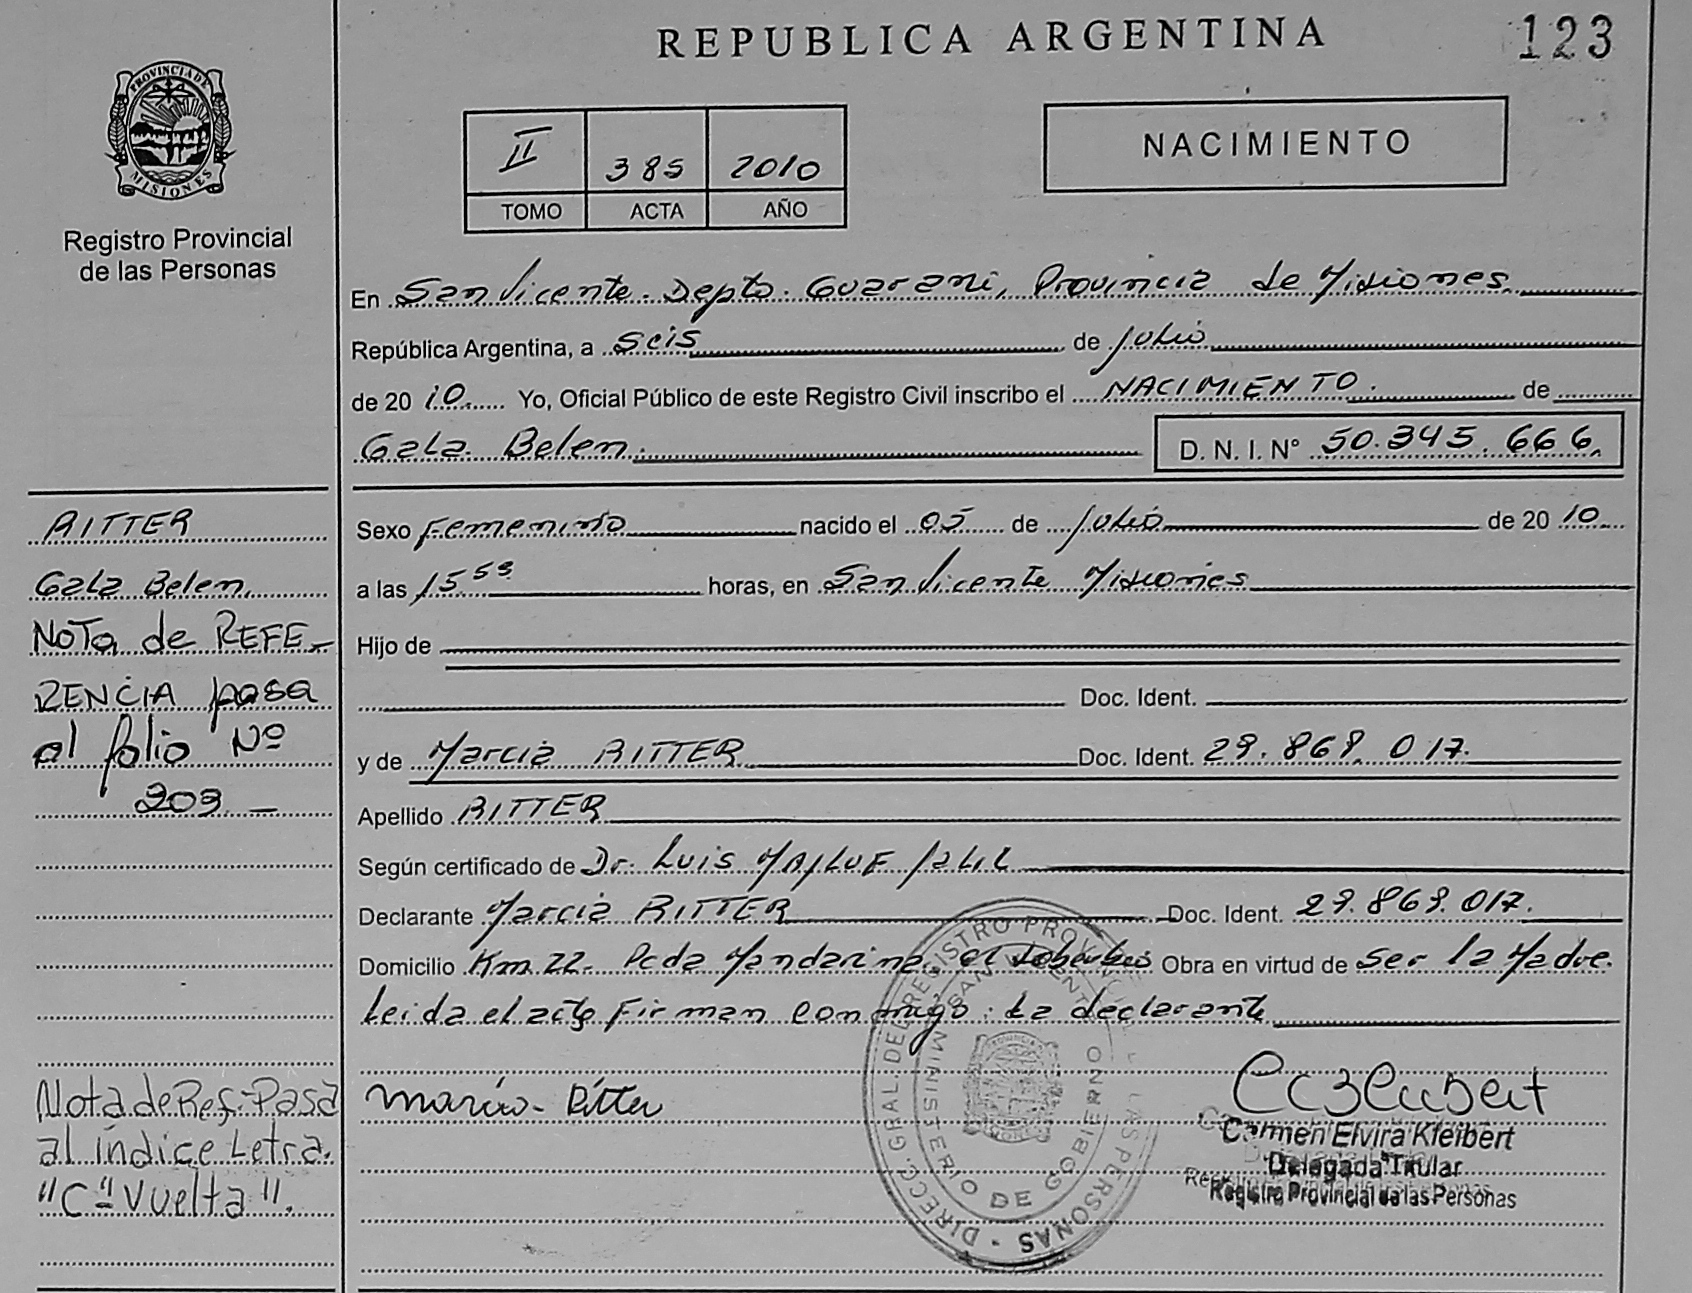 REPUBLICA ARGENTINA
123
PROVINCIA DE
MISIONES
Registro Provincial
de las Personas
II 385 2010
TOMO ACTA AÑO
NACIMIENTO
En San Vicente. Depto. Guarani, Provincia de Misiones
República Argentina, a Seis de Julio
de 2010. Yo, Oficial Público de este Registro Civil inscribo el NACIMIENTO. de
Gala Belen. D. N. I. N° 50.345.666.
RITTER
Gala Belen.
NOTa de REFE-
RENCIA pasa
al folio Nº
203.-
Sexo Femenino nacido el 05 de Julio de 2010
a las 15 53 horas, en San Vicente Misiones
Hijo de
Doc. Ident.
y de Marcia RITTER Doc. Ident. 29.869.017.
Apellido RITTER
Según certificado de Dr. Luis
Declarante Marcia RITTER Doc. Ident. 29.869.017.
Domicilio Km 22. Pcda Mandarina, el Soberbio Obra en virtud de Ser la Madre.
Leida el acta Firman conmigo: La declarante
Nota de Ref. Pasa
al índice Letra.
"C" Vuelta".
Marcia Ritter
DIRECC. GRAL. DEL REGISTRO PROV. LAS PERSONAS
SAN VICENTE
MINISTERIO DE GOBIERNO
Carmen Elvira Kleibert
Delegada Titular
Registro Provincial de las Personas